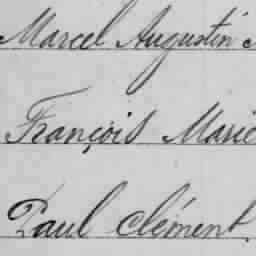 Marcel Augustin
François Marie
Paul Clément